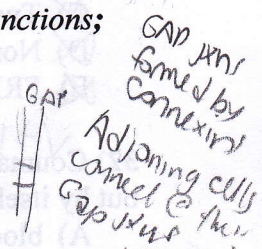 nctions;
GAP
GAP jxns
formed by
Connexins
Adjoining cells
connect @ their
Gap jxns